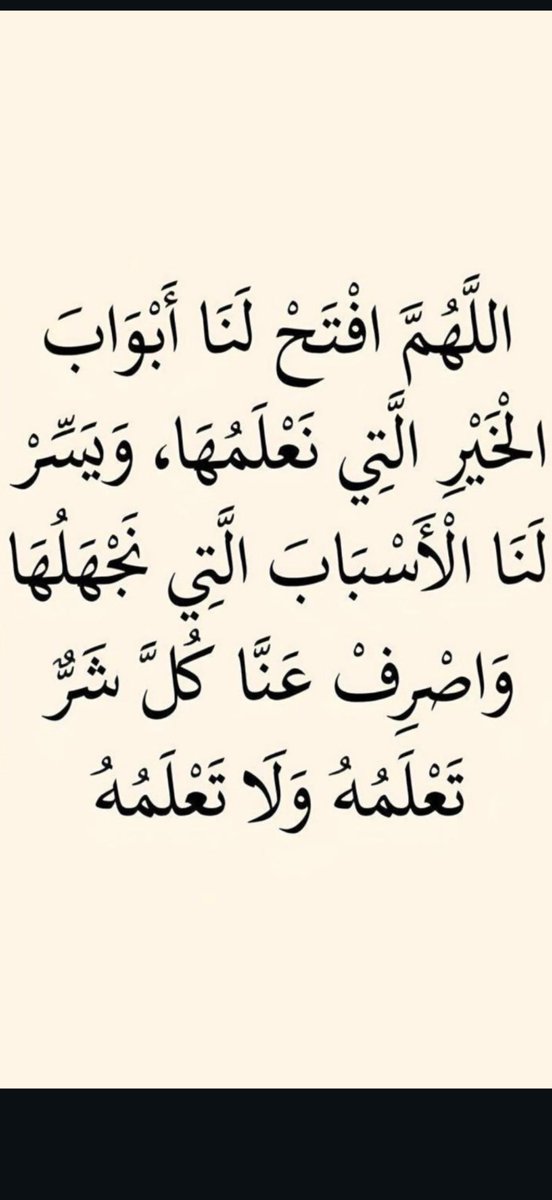 اللَّهُمَّ افْتَحْ لَنَا أَبْوَابَ
الْخَيْرِ الَّتِي نَعْلَمُهَا، وَيَسِّرْ
لَنَا الْأَسْبَابَ الَّتِي نَجْهَلُهَا
وَاصْرِفْ عَنَّا كُلَّ شَرٌّ
تَعْلَمُهُ وَلَا تَعْلَمُهُ